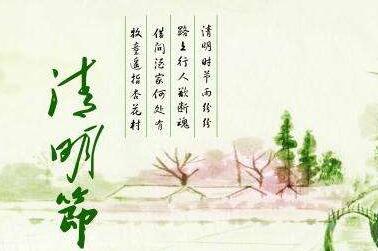 清明時节雨纷纷
路上行人欲断魂
借问酒家何处有
牧童遥指杏花村
清明節